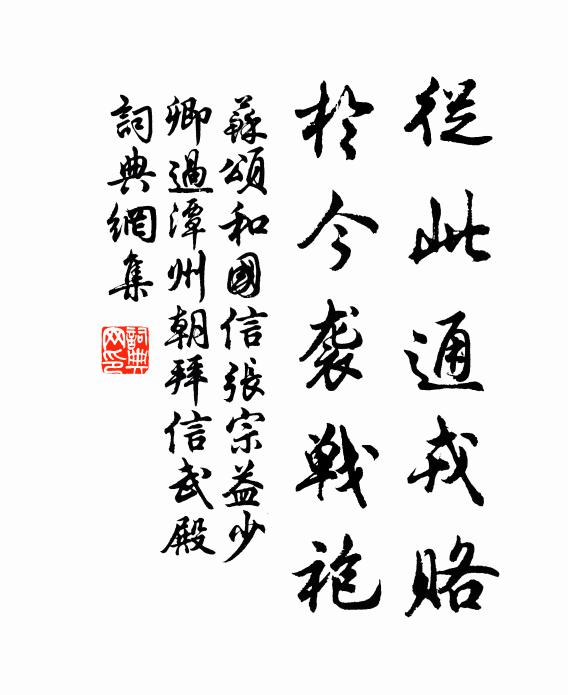 從此通戎賂
於今袭戰袍
蘇頌和國信張宗益少
卿過潭州朝拜信武殿
詞典網集
詞典
网印